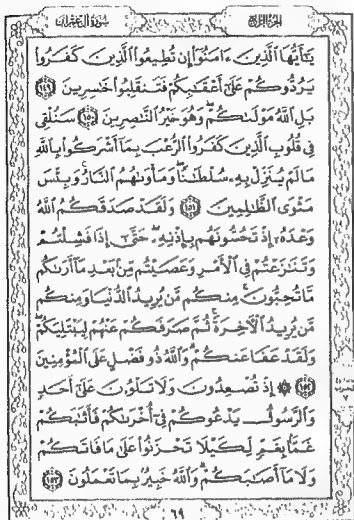 سورة آل عمران
الجزء الرابع
يَـٰٓأَيُّهَا ٱلَّذِينَ ءَامَنُوٓا۟ إِن تُطِيعُوا۟ ٱلَّذِينَ كَفَرُوا۟
يَرُدُّوكُمْ عَلَىٰٓ أَعْقَـٰبِكُمْ فَتَنقَلِبُوا۟ خَـٰسِرِينَ ١٤٩
بَلِ ٱللَّهُ مَوْلَىٰكُمْ ۖ وَهُوَ خَيْرُ ٱلنَّـٰصِرِينَ ١٥٠ سَنُلْقِى
فِى قُلُوبِ ٱلَّذِينَ كَفَرُوا۟ ٱلرُّعْبَ بِمَآ أَشْرَكُوا۟ بِٱللَّهِ
مَا لَمْ يُنَزِّلْ بِهِۦ سُلْطَـٰنًا ۖ وَمَأْوَىٰهُمُ ٱلنَّارُ ۚ وَبِئْسَ
مَثْوَى ٱلظَّـٰلِمِينَ ١٥١ وَلَقَدْ صَدَقَكُمُ ٱللَّهُ
وَعْدَهُۥٓ إِذْ تَحُسُّونَهُم بِإِذْنِهِۦ ۖ حَتَّىٰٓ إِذَا فَشِلْتُمْ
وَتَنَـٰزَعْتُمْ فِى ٱلْأَمْرِ وَعَصَيْتُم مِّنۢ بَعْدِ مَآ أَرَىٰكُم
مَّا تُحِبُّونَ ۚ مِنكُم مَّن يُرِيدُ ٱلدُّنْيَا وَمِنكُم
مَّن يُرِيدُ ٱلْـَٔاخِرَةَ ۚ ثُمَّ صَرَفَكُمْ عَنْهُمْ لِيَبْتَلِيَكُمْ ۖ
وَلَقَدْ عَفَا عَنكُمْ ۗ وَٱللَّهُ ذُو فَضْلٍ عَلَى ٱلْمُؤْمِنِينَ
١٥٢ ۞ إِذْ تُصْعِدُونَ وَلَا تَلْوُۥنَ عَلَىٰٓ أَحَدٍ
وَٱلرَّسُولُ يَدْعُوكُمْ فِىٓ أُخْرَىٰكُمْ فَأَثَـٰبَكُمْ
غَمًّۢا بِغَمٍّ لِّكَيْلَا تَحْزَنُوا۟ عَلَىٰ مَا فَاتَكُمْ
وَلَا مَآ أَصَـٰبَكُمْ ۗ وَٱللَّهُ خَبِيرٌۢ بِمَا تَعْمَلُونَ ١٥٣
٦٩